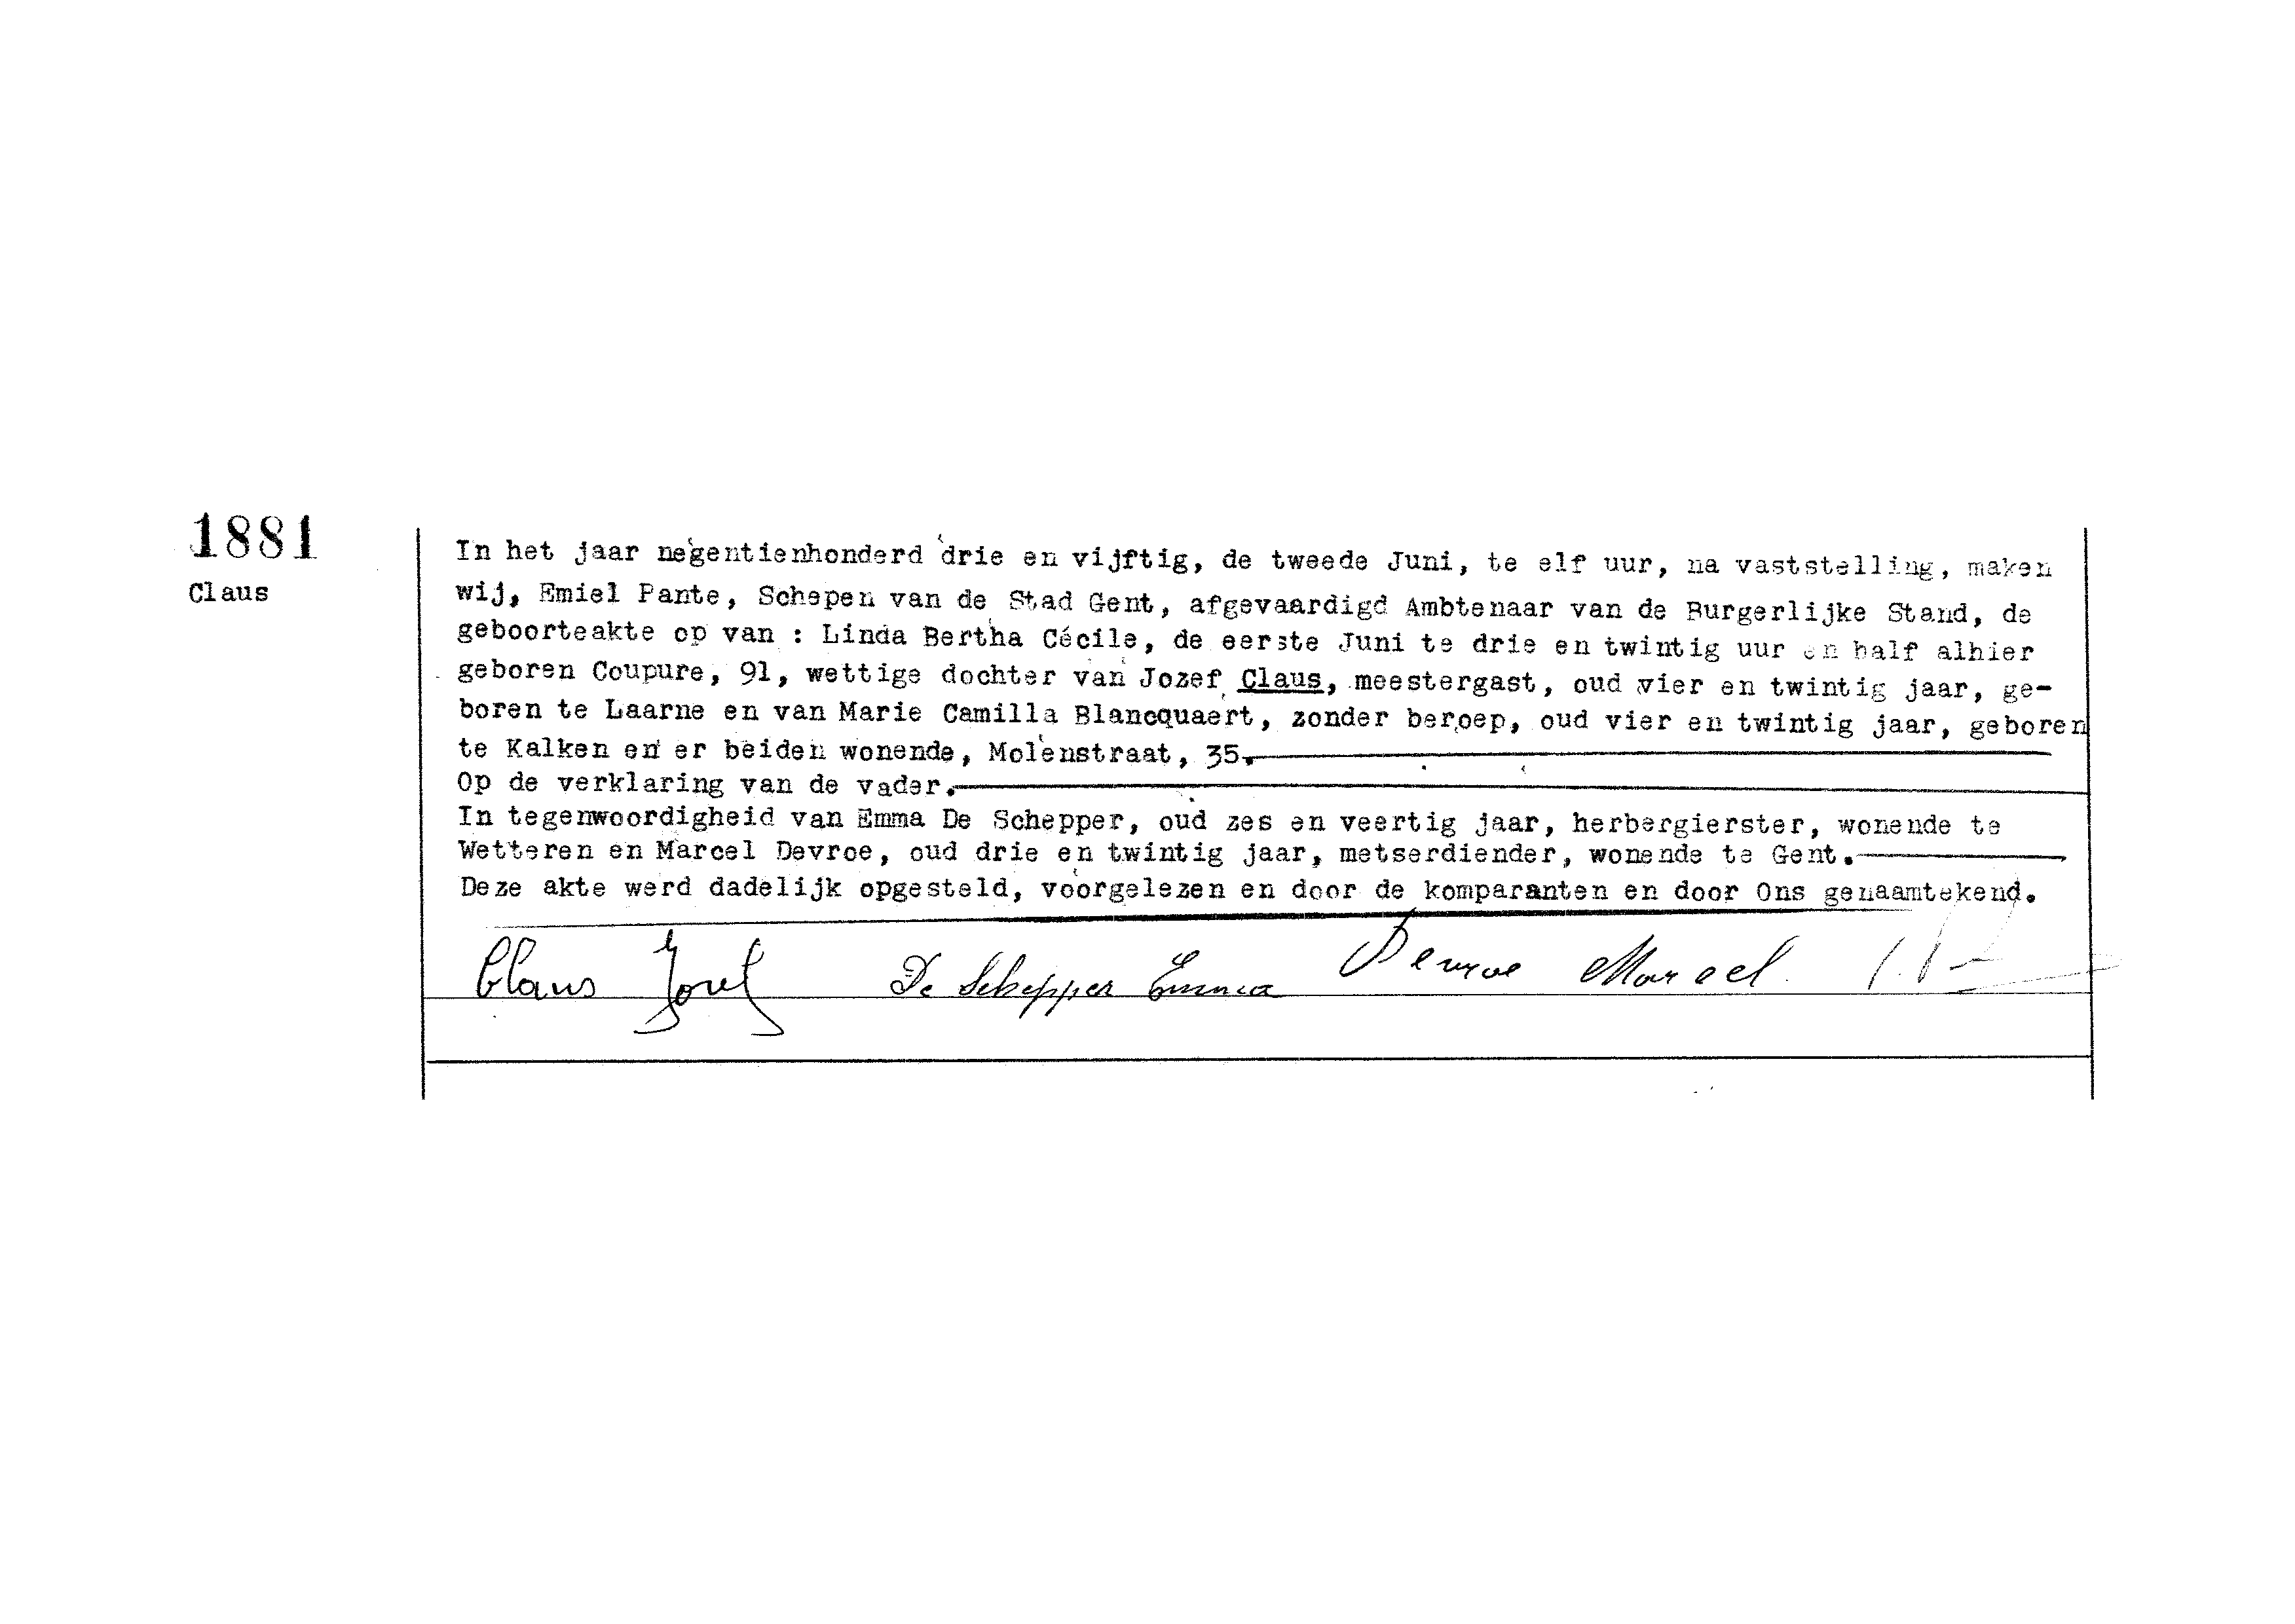 1881
Claus
In het jaar negentienhonderd drie en vijftig, de tweede Juni, te elf uur, na vaststelling, maken
wij, Emiel Pante, Schepen van de Stad Gent, afgevaardigd Ambtenaar van de Burgerlijke Stand, de
geboorteakte op van : Linda Bertha Cécile, de eerste Juni te drie en twintig uur en half alhier
geboren Coupure, 91, wettige dochter van Jozef Claus, meestergast, oud vier en twintig jaar, ge-
boren te Laarne en van Marie Camilla Blancquaert, zonder beroep, oud vier en twintig jaar, geboren
te Kalken en er beiden wonende, Molenstraat, 35.
Op de verklaring van de vader.
In tegenwoordigheid van Emma De Schepper, oud zes en veertig jaar, herbergierster, wonende te
Wetteren en Marcel Devroe, oud drie en twintig jaar, metserdiender, wonende te Gent.
Deze akte werd dadelijk opgesteld, voorgelezen en door de komparanten en door Ons genaamtekend.
Claus Jozef De Schepper Emma Devroe Marcel.